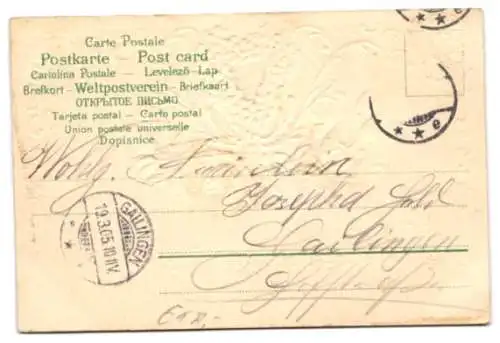 Carte Postale
Postkarte — Post card
Cartolina Postale — Levelező-Lap
Brefkort - Weltpostverein - Briefkaart
ОТКРЫТОЕ ПИСЬМО
Tarjeta postal — Carte postal
Union postale universelle
Dopisnice
e
e
Wohlg. Fräulein
Josepha
GAILINGEN
19.3.05.10-11V.
Gailingen